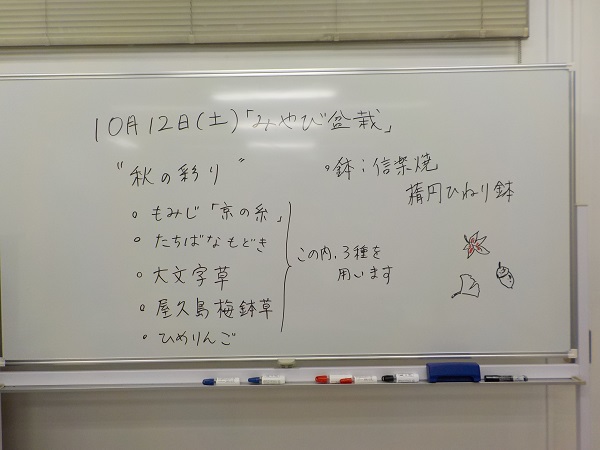 10月12日(土)「みやび盆栽」
"秋の彩り"
・もみじ「京の糸」
・たちばなもどき
・大文字草
・屋久島梅鉢草
・ひめりんご
この内、3種を
用います
・鉢:信楽焼
楕円ひねり鉢